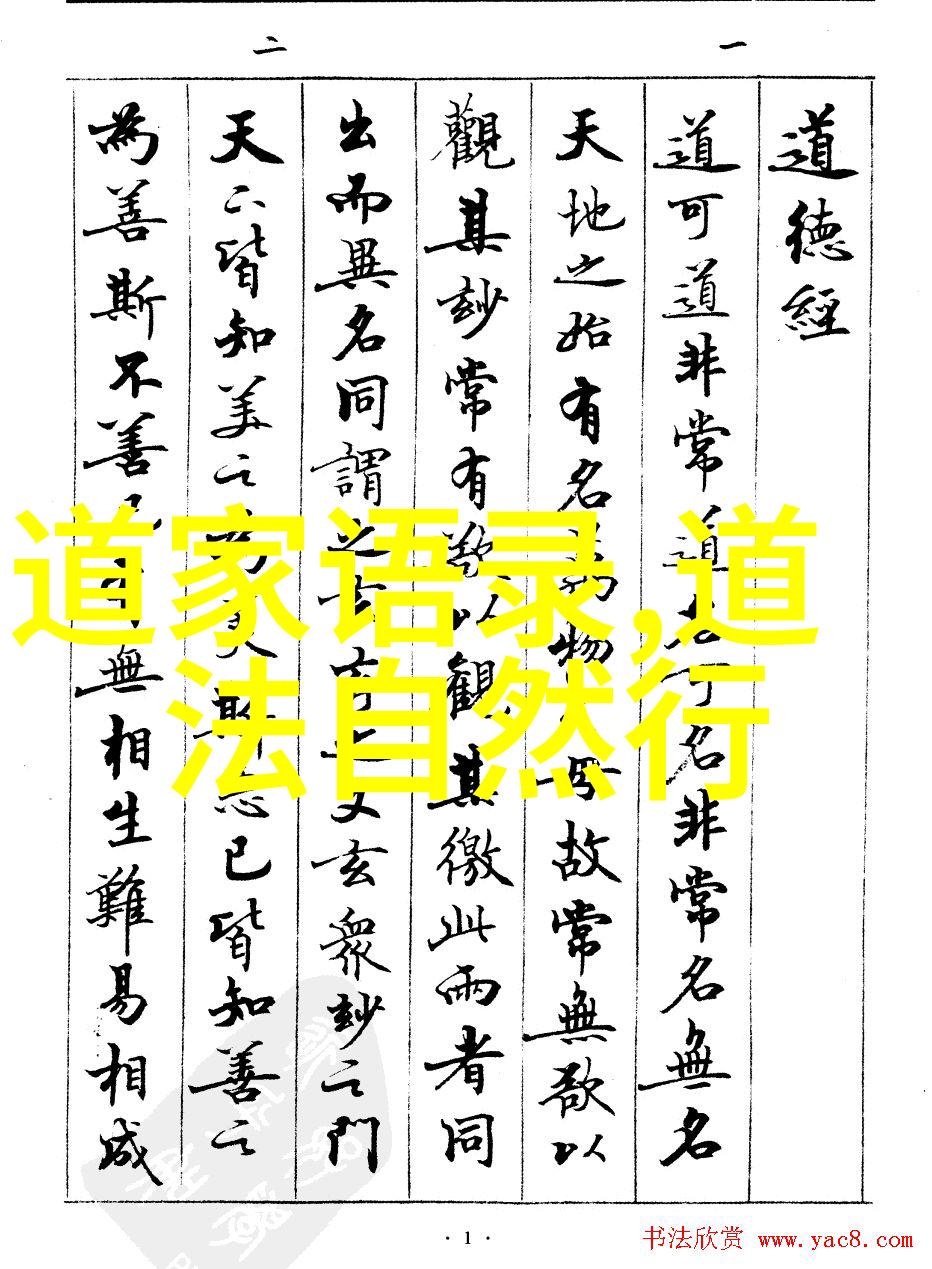 一
二
道德經
道可道非常道名可名非常名無名
天地之始有名萬物之母故常無欲以
觀其玅常有欲以觀其徼此兩者同
出而異名同謂之玄玄之又玄衆玅之門
天下皆知美之為美斯惡已皆知善之
為善斯不善已有無相生難易相成
道家语录,道
法自然行
· 1 ·
书法欣赏 www.yac8.com